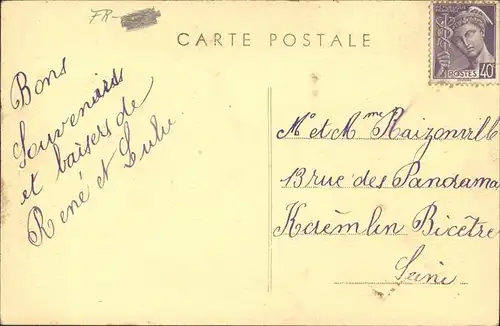 FR-
CARTE POSTALE
POSTES 40
Bons
Souvenirs
et baisers de
René et Lulu
Mr et Mme Raizonville
13 rue des Panorama
Kremlin Bicêtre
Seine